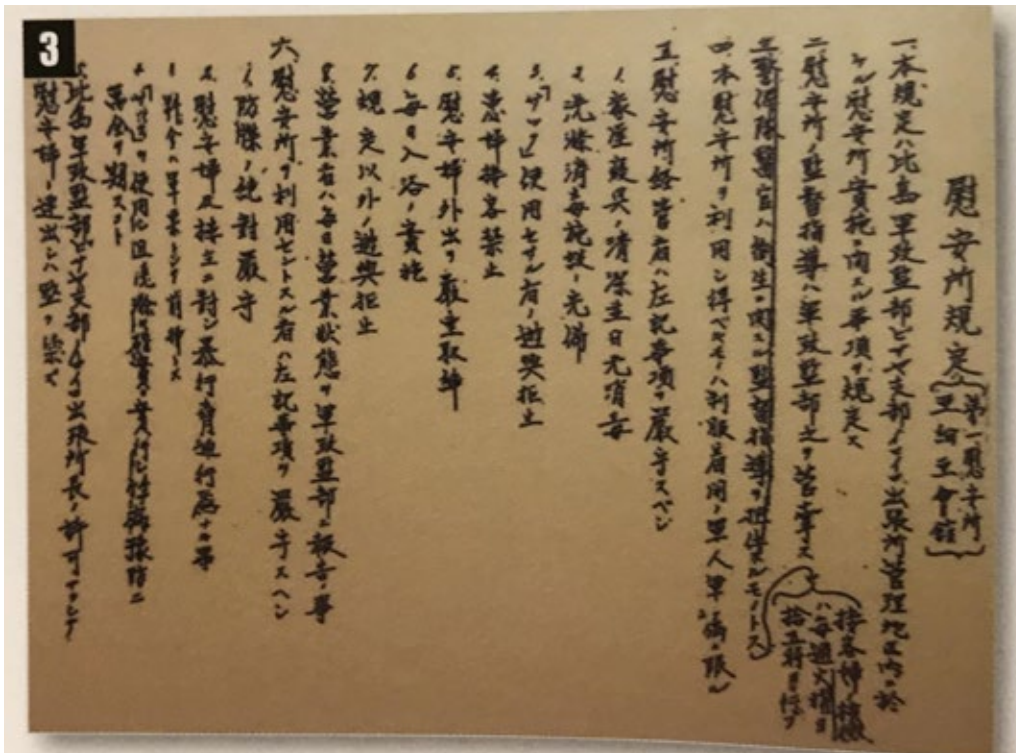 3
慰安所規定(第一慰安所
亜細亜會館)
一、本規定ハ比島軍政監部ビサヤ支部イロイロ出張所管理地区内ニ於
ケル慰安所実施ニ関スル事項ヲ規定ス
二、慰安所ノ監督指導ハ軍政監部之ヲ管掌ス
三、警備隊醫官ハ衛生ニ関スル監督指導ヲ担任スルモノトス
接客婦ノ検黴
ハ毎週火曜日
拾五時ヨリ行フ
四、本慰安所ヲ利用シ得ベキモノハ制服着用ノ軍人軍属ニ限ル
五、慰安所経営者ハ左記事項ヲ厳守スベシ
1. 家屋寝具ノ清潔並日光消毒
2. 洗滌消毒施設ノ完備
3.「サック」使用セザル者ノ遊興拒止
4. 患婦接客禁止
5. 慰安婦外出ヲ厳重取締
6. 毎日入浴ノ実施
7. 規定以外ノ遊興拒止
8. 営業者ハ毎日営業状態ヲ軍政監部ニ報告ノ事
六、慰安所ヲ利用セントスル者ハ左記事項ヲ厳守スベシ
1. 防諜ノ絶対厳守
2. 慰安婦及楼主ニ対シ暴行脅迫行為ナキ事
3. 料金ハ軍票トシテ前払トス
4.「サック」ヲ使用シ且洗滌ヲ確実ニ実行シ性病予防ニ
萬全ヲ期スコト
5. 比島軍政監部ビサヤ支部イロイロ出張所長ノ許可ナクシテ
慰安婦ノ連出シハ堅ク禁ズ